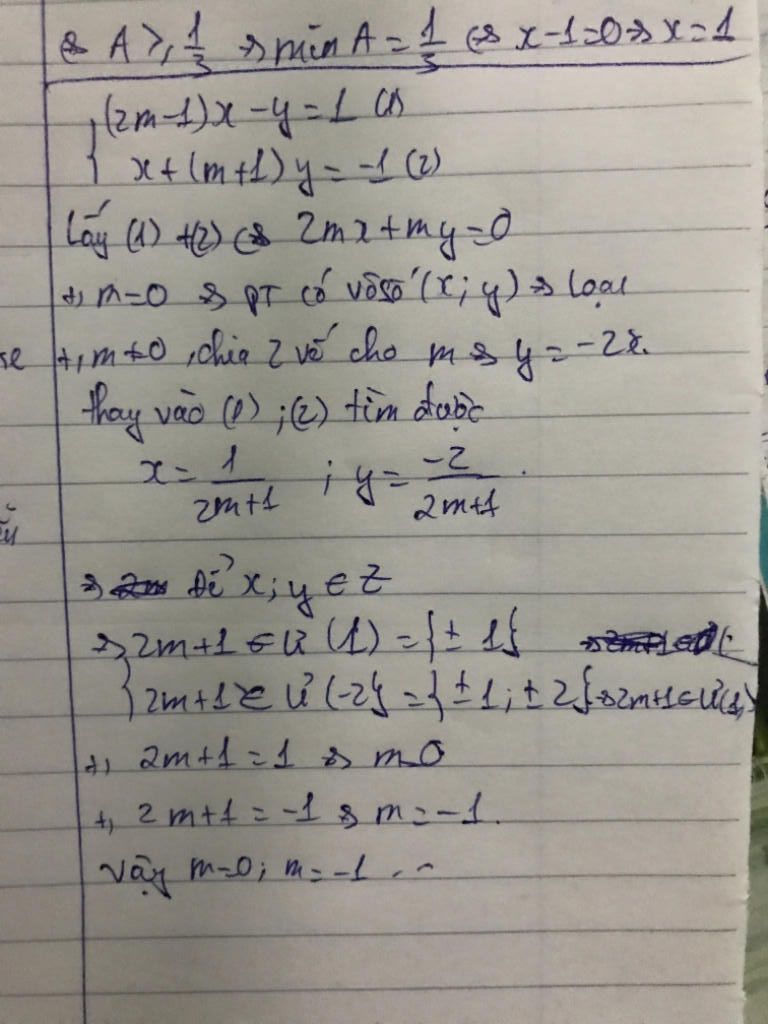 ⇔ A ≥ 1/3 ⇒ min A = 1/3 ⇔ x-1=0 ⇒ x=1
{ (2m-1)x - y = 1 (1)
x + (m+1)y = -1 (2)
Lấy (1) + (2) ⇔ 2mx + my = 0
+, m=0 ⇒ PT có vô số (x; y) ⇒ loại
+, m≠0, chia 2 vế cho m ⇒ y = -2x.
thay vào (1); (2) tìm được
x = 1/(2m+1) ; y = -2/(2m+1).
⇒ Để x; y ∈ Z
⇒ { 2m+1 ∈ Ư(1) = {±1}
2m+1 ∈ Ư(-2) = {±1; ±2} ⇒ 2m+1 ∈ Ư(1)
+, 2m+1 = 1 ⇒ m=0
+, 2m+1 = -1 ⇒ m = -1.
Vậy m=0; m=-1 ..